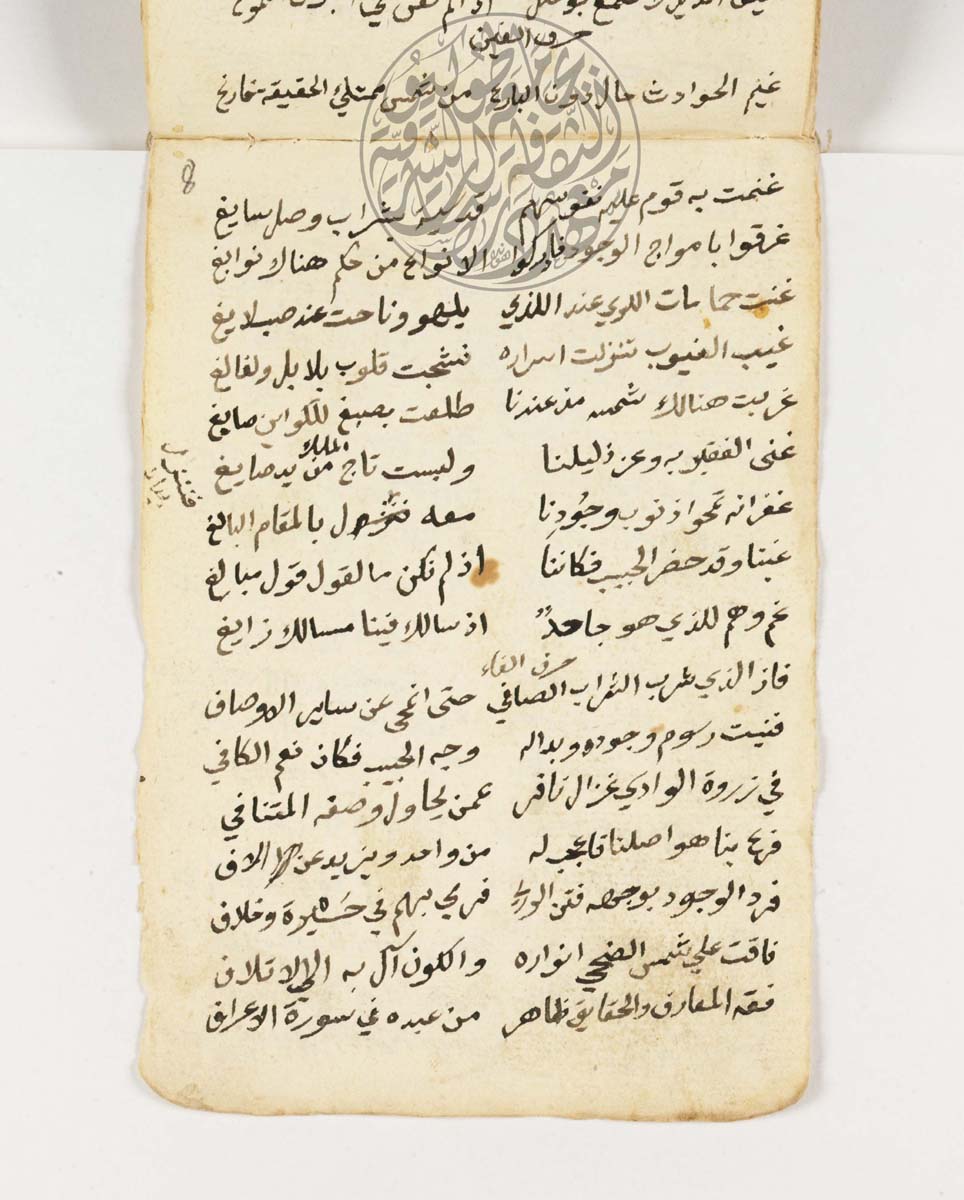 حرف الغين
غيم الحوادث حال دون البازغ من شمس ممتلئ الحقيقة فارغ
8
غنمت به قوم عليهم نفوسهم قدسية بشراب وصل سايغ
غرقوا بامواج الوجود فادركوا الانواع من حكم هناك نوابغ
غنت حمامات اللوي عند اللذي يلهو وناحت عند صب لايغ
غيب الغيوب تنزلت اسراره فشجت قلوب بلابل ولغالغ
غربت هنالك شمسه مذ عندنا طلعت بصبغ للكواين صابغ
غنى الفقير به وعز ذليلنا ولبست تاج الملك من يد صايغ
غفرانه تمحوا ذنوب وجُودِنا معه بالمقام البالغ
غبنا وقد حضر الحبيب فكاننا اذ لم نكن مالقول قول مبالغ
غم وهم للذي هو جاحدٌ اذ سالك فينا مسالك زايغ
حرف الفاء
فاز الذي شرب الشراب الصافي حتى انمحى عن ساير الاوصاف
فنيت رسوم وجوده وبداله وجه الحبيب فكان نعم الكافي
في زروة الوادي غزال نافر عمن يحاول وصفه المتنافي
فرع بنا هو اصلنا فاعجب له من واحد ويزيد عن الاف
فرد الوجود بوجهه فتن الورى فرمي بهم في حَسْرة وخلاف
فاقت علي شمس الضحى انواره والكون آل به الي الاتلاف
فقه المعارف والحقايق ظاهر من عبده في سورة الاعراف